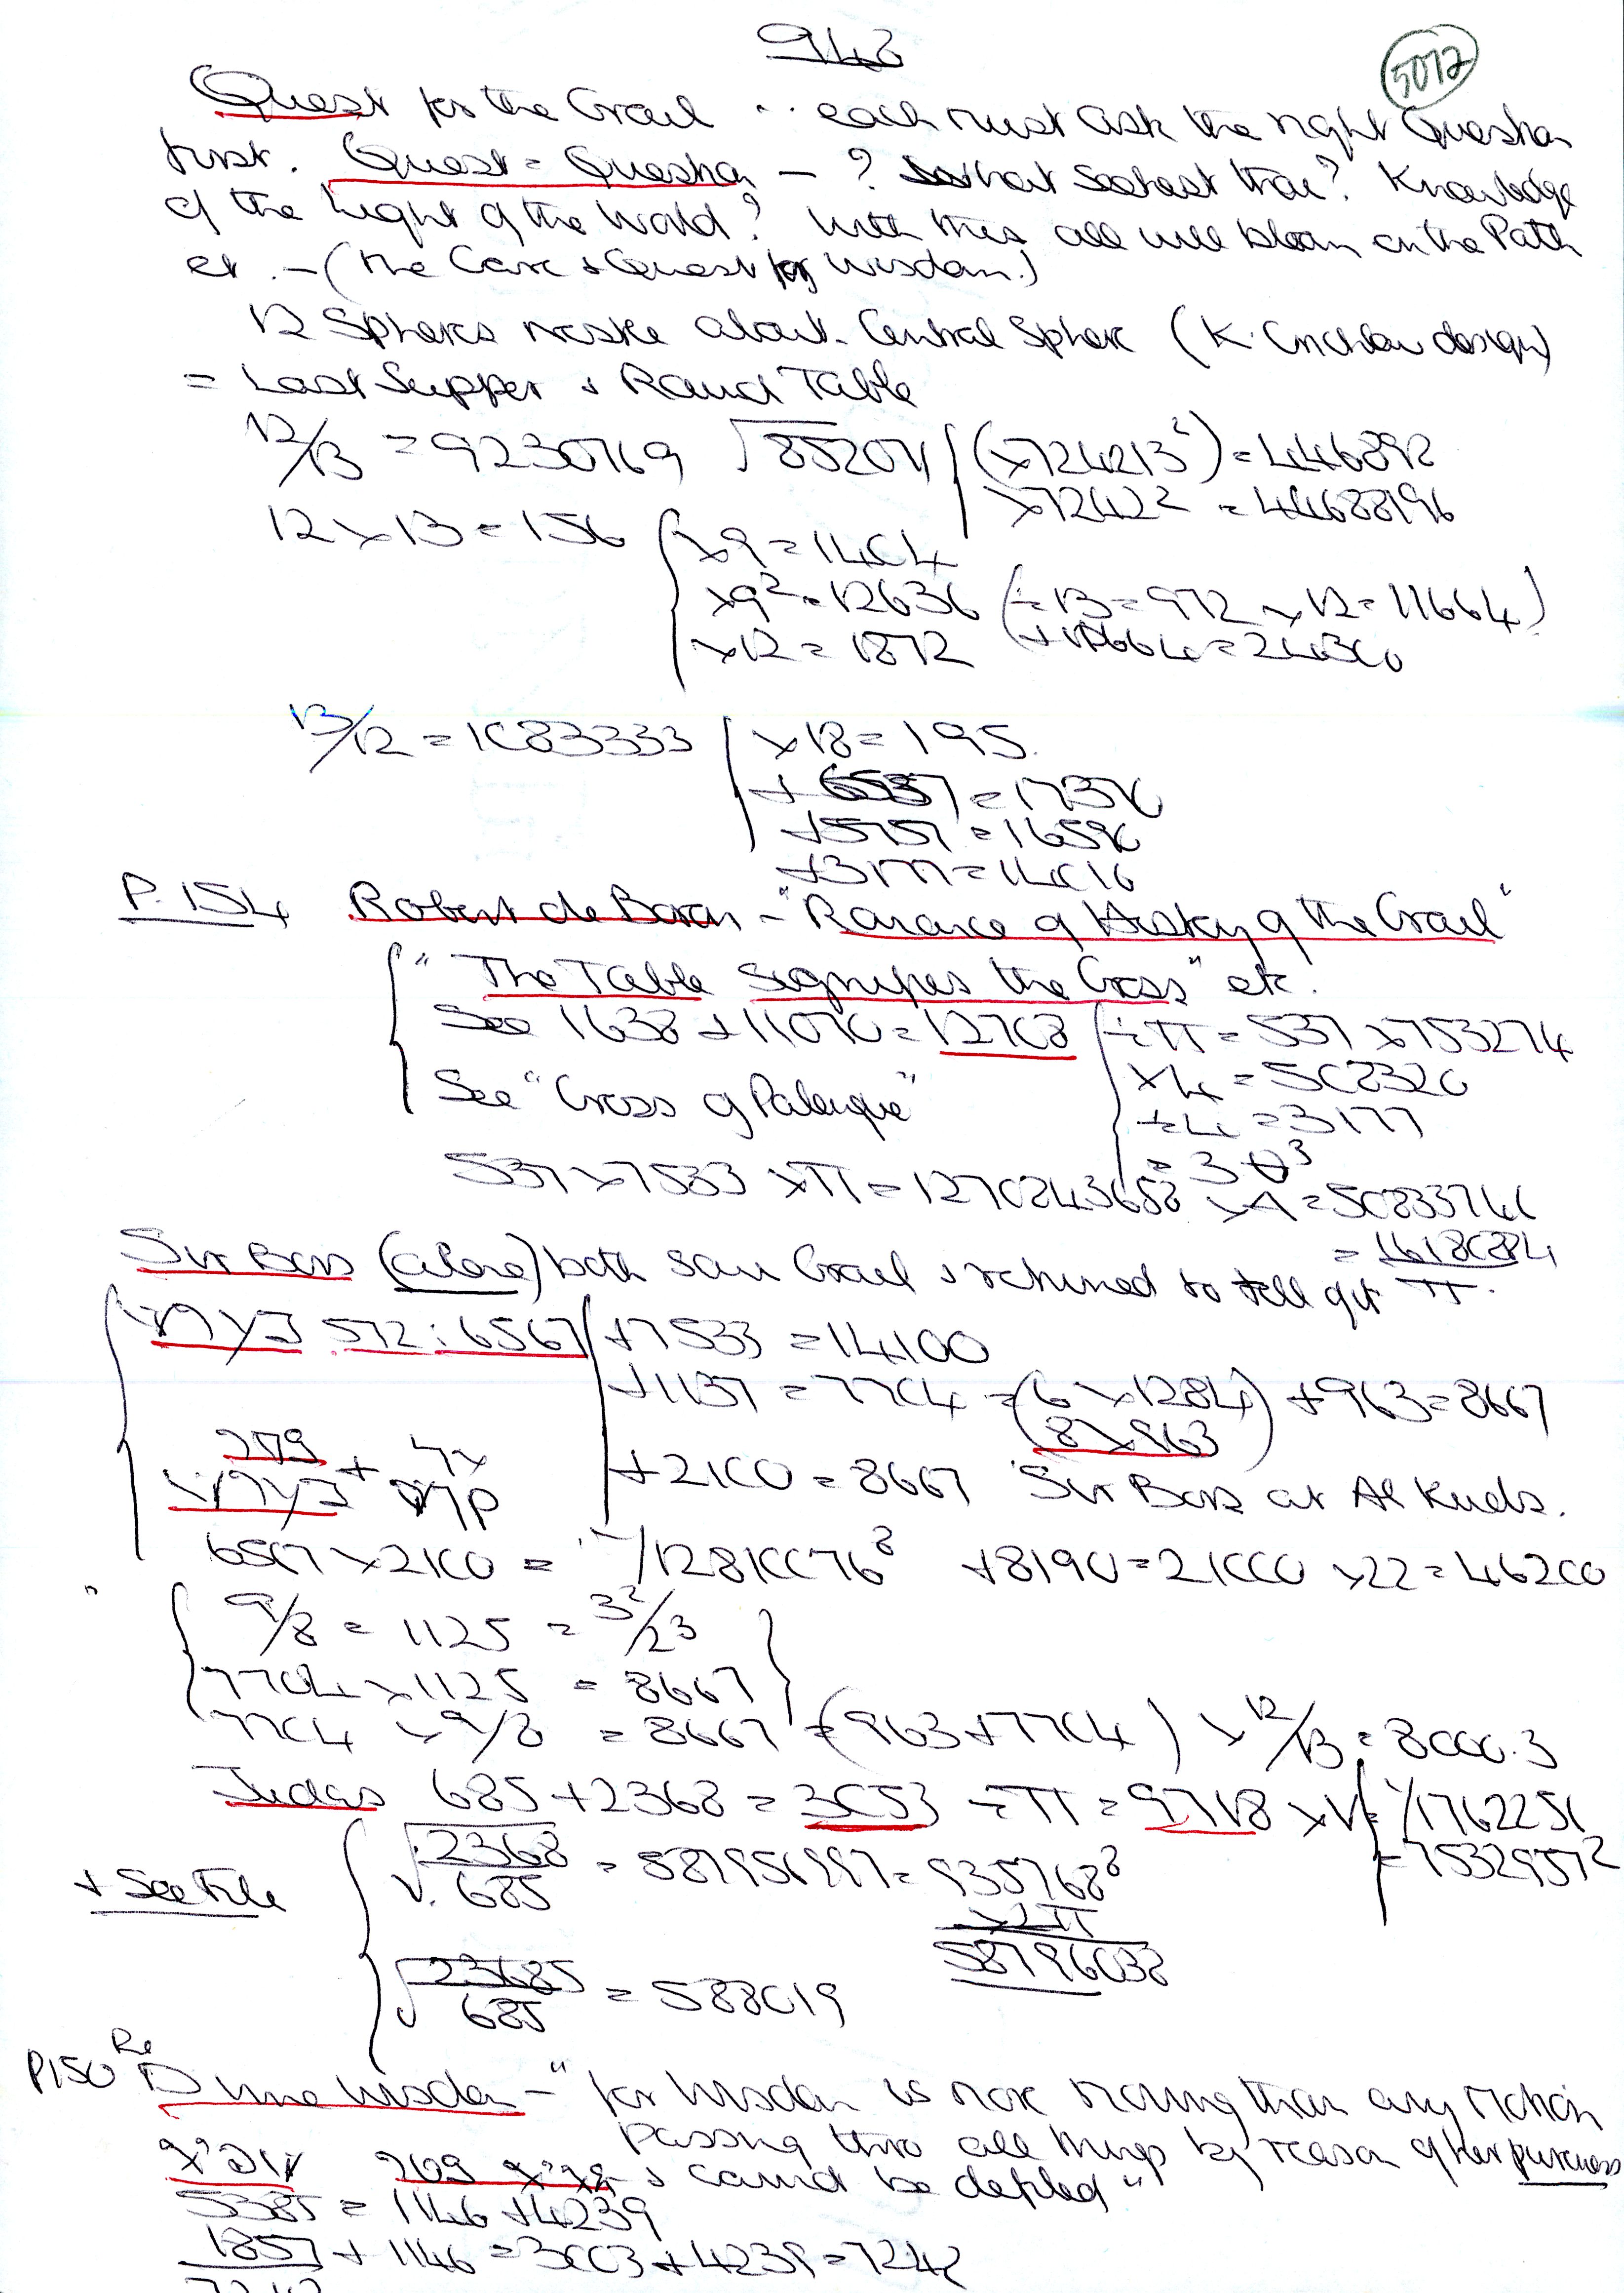 942
5072
Quest for the Grail ∴ each must ask the right Question
first. Quest = Question — ? What seekest thou? Knowledge
of the Light of the World? With this all will bloom on the Path
et. — (The Cave & Quest for Wisdom.)
12 Spheres nestle about Central Sphere (K. Critchlow design)
= Last Supper & Round Table
12/13 = 9230769 √852071 (×724213²) = 446892
×72422 = 44688196
12 × 13 = 156 ×9 = 1404
×9² = 12636 (÷13 = 972 ×12 = 11664)
×12 = 1872 (+12664 = 24300
13/12 = 1083333 ×18 = 195.
+ 6537 = 17370
+5757 = 16590
+3177 = 14010
P. 154 Robert de Boron — "Romance of History of the Grail"
"The Table Signifies the Cross" etc.
See 1638 + 11070 = 12708 ÷π = 537 × 753274
×4 = 508320
÷4 = 3177
See "Cross of Palenque"
537 × 7533 × π = 1270843658 ×4 = 50833746
= 16180884/π.
Sir Bors (alone) both saw Grail & returned to tell of it
572 : 6567 +7533 = 14100
+1137 = 7704 = (6 × 1284) +963 = 8667
(8 × 963)
+2100 = 8667 Sir Bors at Al Kuds.
6567 × 2100 = 1/12810076⁸ +8190 = 21000 ×22 = 46200
9/8 = 1125 = 3²/23
7704 × 1125 = 8667
7704 × 9/8 = 8667 = (963 + 7704) × 12/13 = 8000.3
Judas 685 + 2368 = 3053 ÷ π = 9718 × V = 1/1762251
= 75329572
+ See File √2368/685 = 587956997 = 935768⁸
×2π
58796038
√23685/685 = 588019
P150 Re Divine Wisdom — "for Wisdom is more moving than any Motion
Passing thro all things by reason of her pureness
& cannot be defiled"
5385 = 1146 + 4239
1857 + 1146 = 3003 + 4239 = 7242